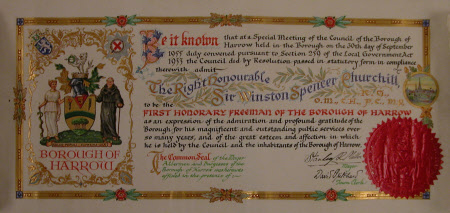 Be it known that at a Special Meeting of the Council of the Borough of
Harrow held in the Borough on the 30th day of September
1955 duly convened pursuant to Section 259 of the Local Government Act
1933 the Council did by Resolution passed in statutory form in compliance
therewith admit
The Right Honourable
Sir Winston Spencer Churchill
K.G.
O.M., C.H., P.C., M.P.
to be the
FIRST HONORARY FREEMAN OF THE BOROUGH OF HARROW
as an expression of the admiration and profound gratitude of the
Borough for his magnificent and outstanding public services over
so many years, and of the great esteem and affection in which
he is held by the Council and the inhabitants of the Borough of Harrow.
The Common Seal of the Mayor
Aldermen and Burgesses of the
Borough of Harrow was hereunto
affixed in the presence of
Town Clerk
BOROUGH OF
HARROW